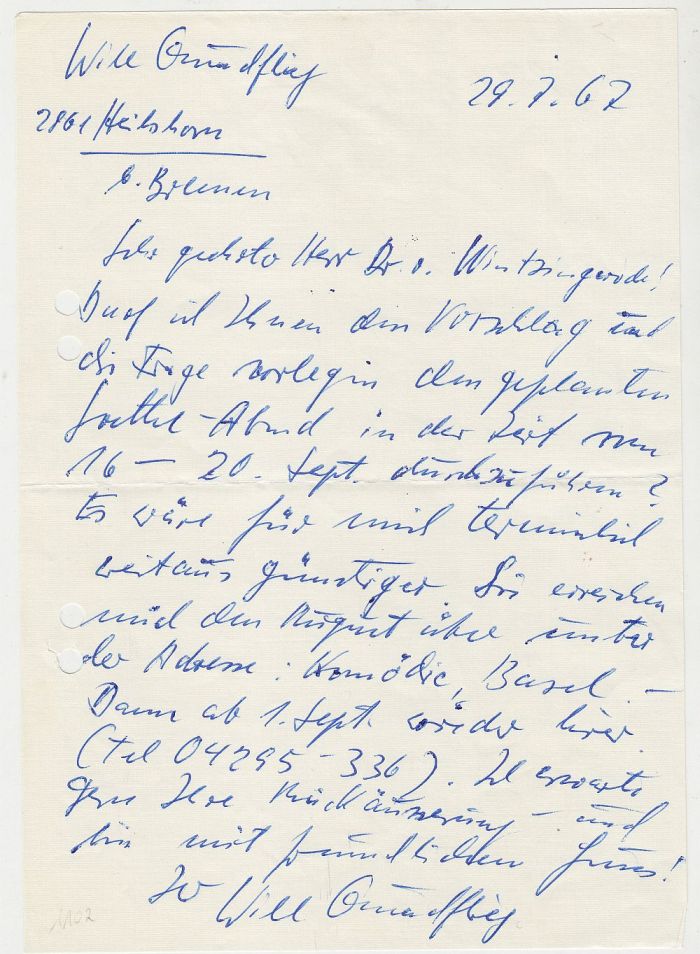 Will Quadflieg
29.7.67
2861 Heilshorn
b. Bremen
Sehr geehrter Herr Dr. v. Wintzingerode!
Darf ich Ihnen den Vorschlag und
die Frage vorlegen den geplanten
Goethe-Abend in der Zeit vom
16 – 20. Sept. durchzuführen?
Es wäre für mich terminlich
weitaus günstiger. Sie erreichen
mich den August über unter
der Adresse: Komödie, Basel. –
Dann ab 1. Sept. wieder hier
(Tel 04295-336). Ich erwarte
gern Ihre Rückäusserung – und
bin mit freundlichem Gruss!
Ihr Will Quadflieg
1102